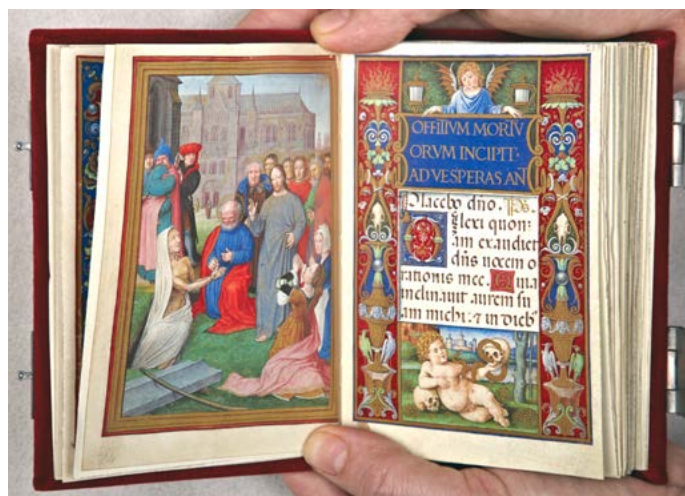 OFFITIVM MORTV
ORVM INCIPIT·
AD VESPERAS AÑ
Placebo dño. Ps.
Dilexi quon=
am exaudiet
dñs uocem o
rationis mee. Quia
inclinauit aurem su
am michi: & in dieb9